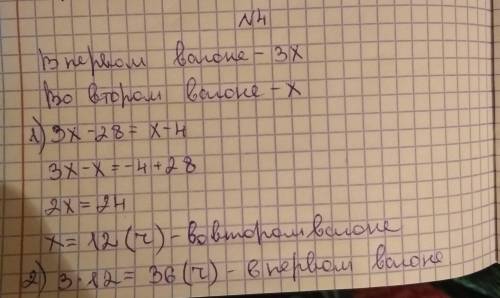 №4
В первом вагоне - 3х
Во втором вагоне - х
1) 3х - 28 = х - 4
3х - х = -4 + 28
2х = 24
х = 12 (ч) - во втором вагоне
2) 3 · 12 = 36 (ч) - в первом вагоне